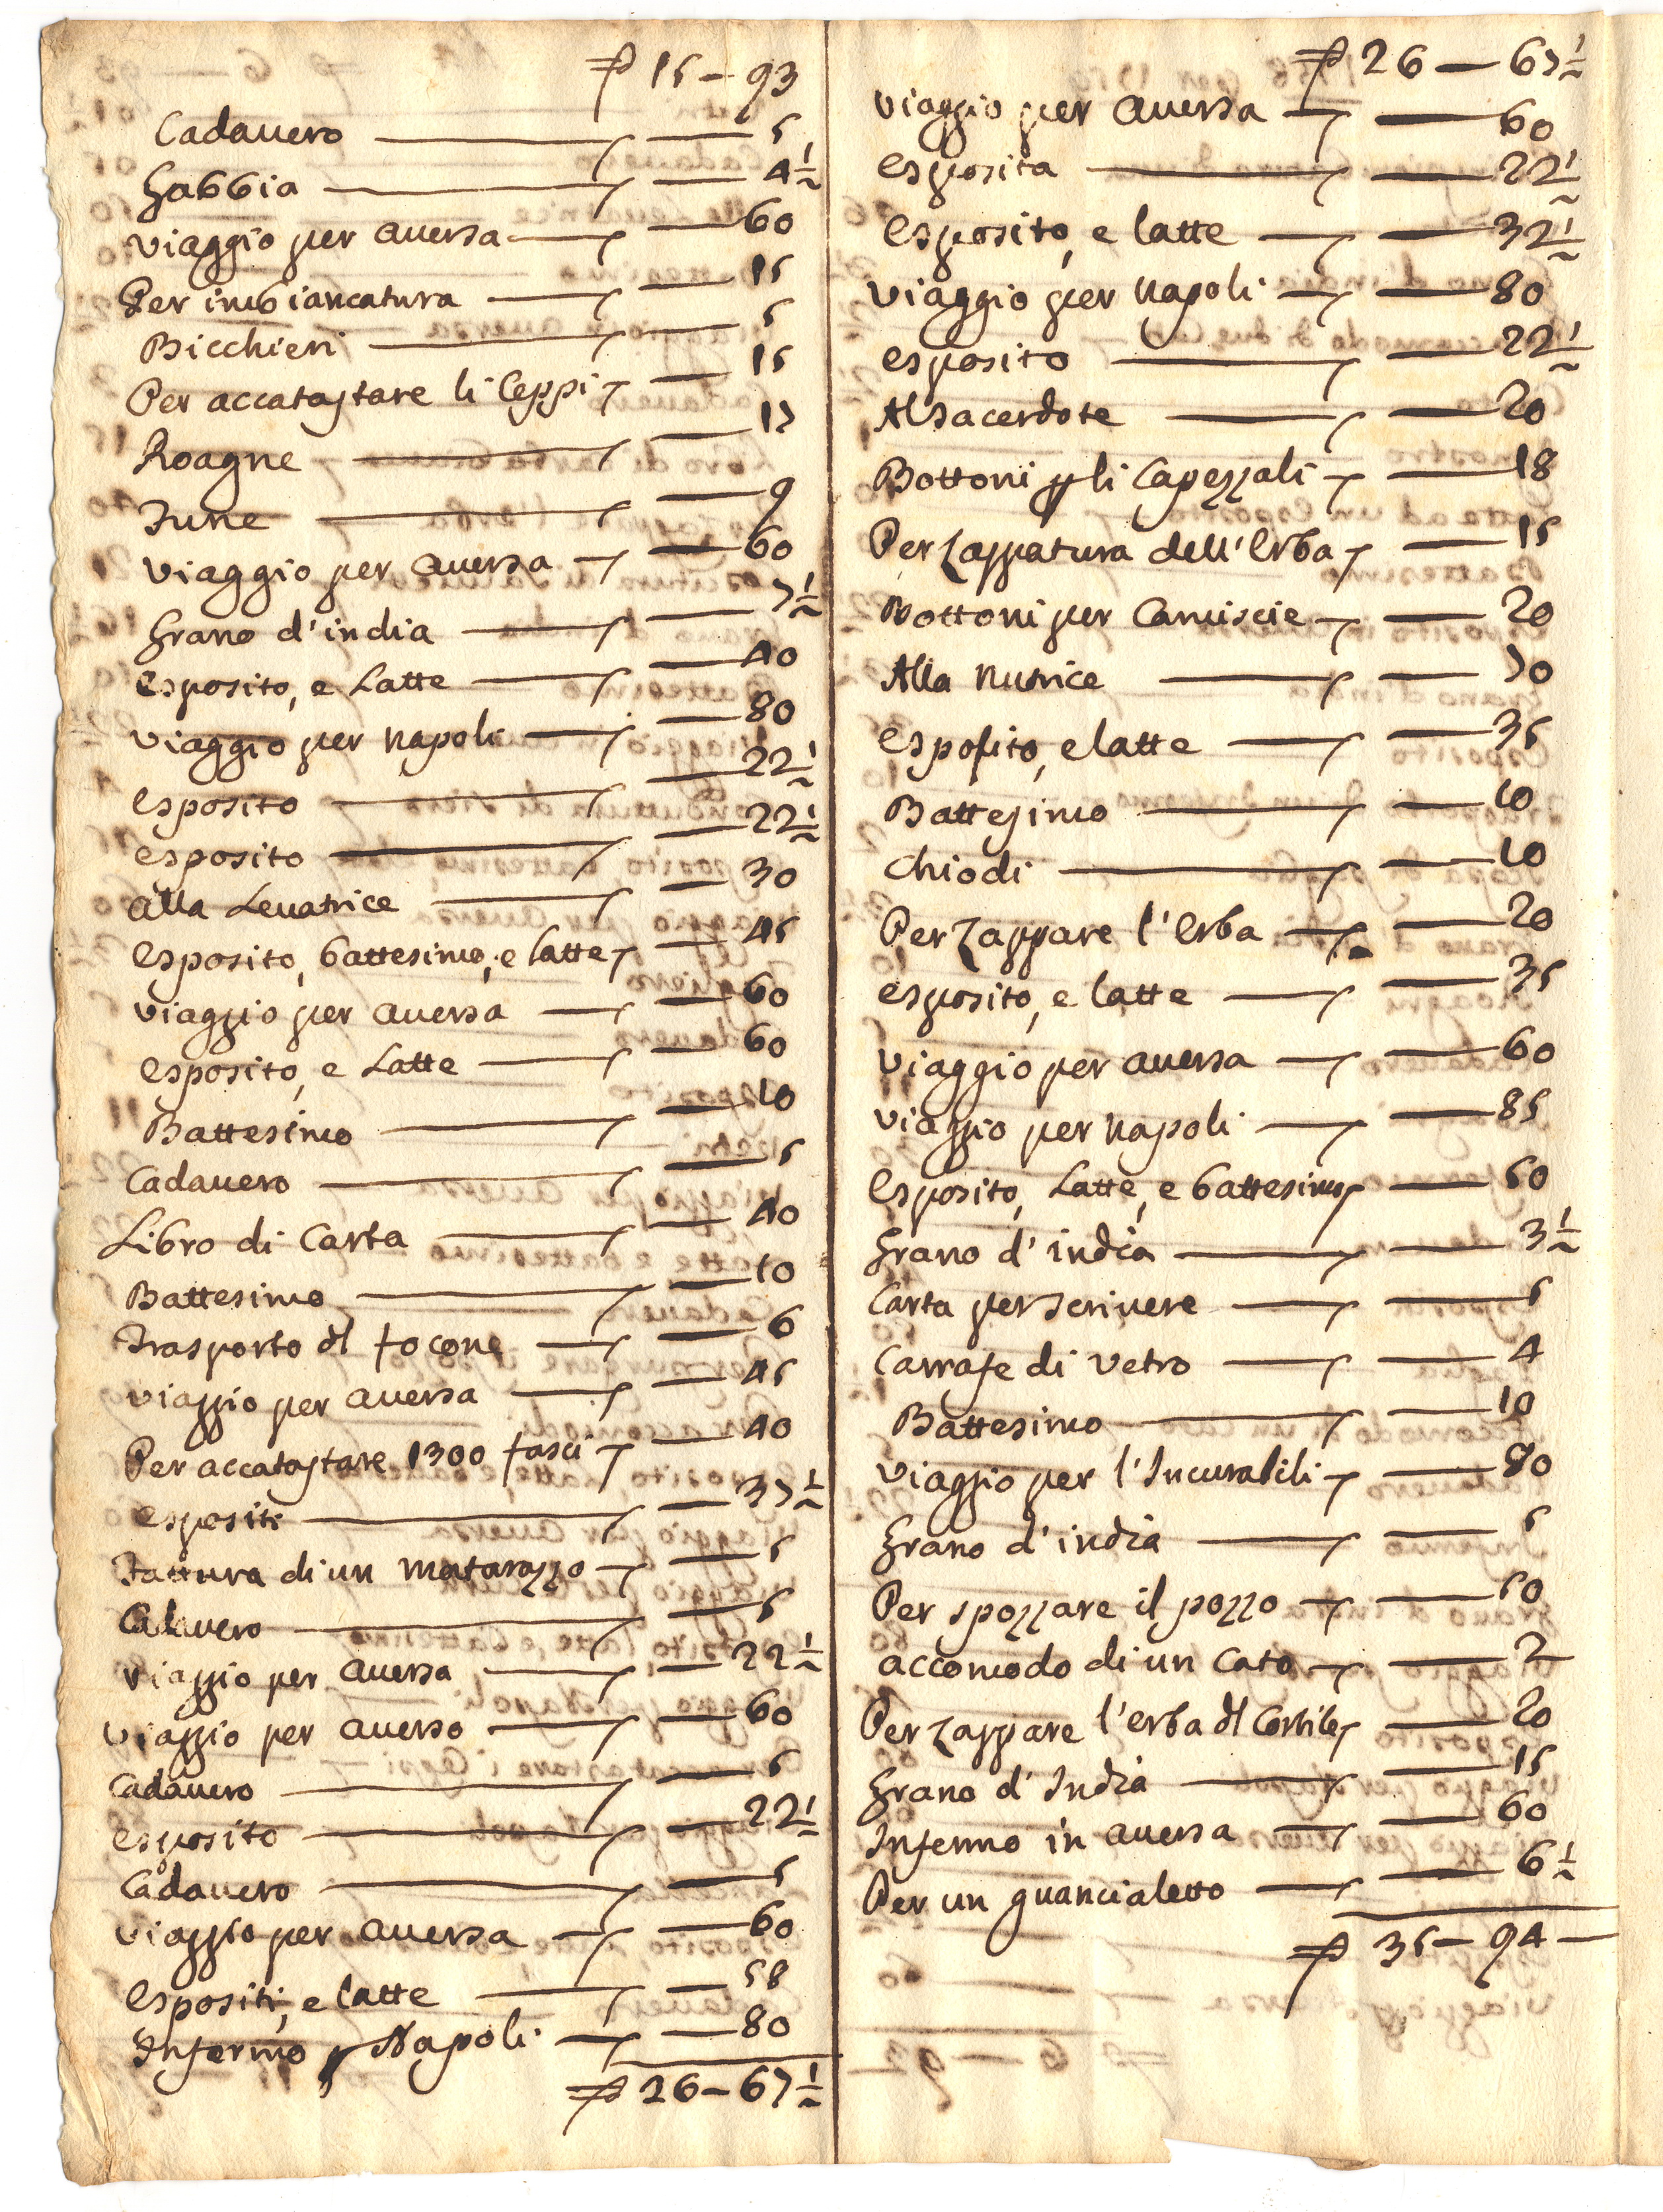 15 — 93
Cadavero — 5
Gabbia — 4 1/2
Viaggio per Aversa — 60
Per imbiancatura — 15
Bicchieri — 5
Per accatastare li Ceppi — 15
Roagne — 17
Fune — 9
Viaggio per Aversa — 60
Grano d'india — 7 1/2
Esposito, e Latte — 40
Viaggio per Napoli — 80
Esposito — 22 1/2
Esposito — 22 1/2
Alla Levatrice — 30
Esposito, battesimo, e latte — 45
Viaggio per Aversa — 60
Esposito, e Latte — 60
Battesimo — 10
Cadavero — 5
Libro di Carta — 40
Battesimo — 10
Trasporto dl focone — 6
Viaggio per Aversa — 45
Per accatastare 1300 fasci — 40
Espositi — 37 1/2
Fattura di un Matarazzo — 5
Cadavero — 5
Viaggio per Aversa — 22 1/2
Viaggio per Aversa — 60
Cadavero — 5
Esposito — 22 1/2
Cadavero — 5
Viaggio per Aversa — 60
Espositi, e latte — 58
Infermo p Napoli — 80
26 — 67 1/2
26 — 67 1/2
Viaggio per Aversa — 60
Esposita — 22 1/2
Esposito, e latte — 32 1/2
Viaggio per Napoli — 80
Esposito — 22 1/2
Al Sacerdote — 20
Bottoni p li Capezzali — 18
Per Zappatura dell'Erba — 15
Bottoni per Camiscie — 20
Alla Nutrice — 70
Esposito, e latte — 35
Battesimo — 10
Chiodi — 10
Per Zappare l'Erba — 20
Esposito, e latte — 35
Viaggio per Aversa — 60
Viaggio per Napoli — 85
Esposito, Latte, e battesimo — 50
Grano d'india — 3 1/2
Carta per scrivere — 5
Carrafe di Vetro — 4
Battesimo — 10
Viaggio per l'Incurabili — 80
Grano d'india — 5
Per spozzare il pozzo — 50
Accomodo di un Cato — 2
Per Zappare l'erba dl Cortile — 20
Grano d'India — 15
Infermo in Aversa — 60
Per un guancialetto — 6 1/2
35 — 94 —